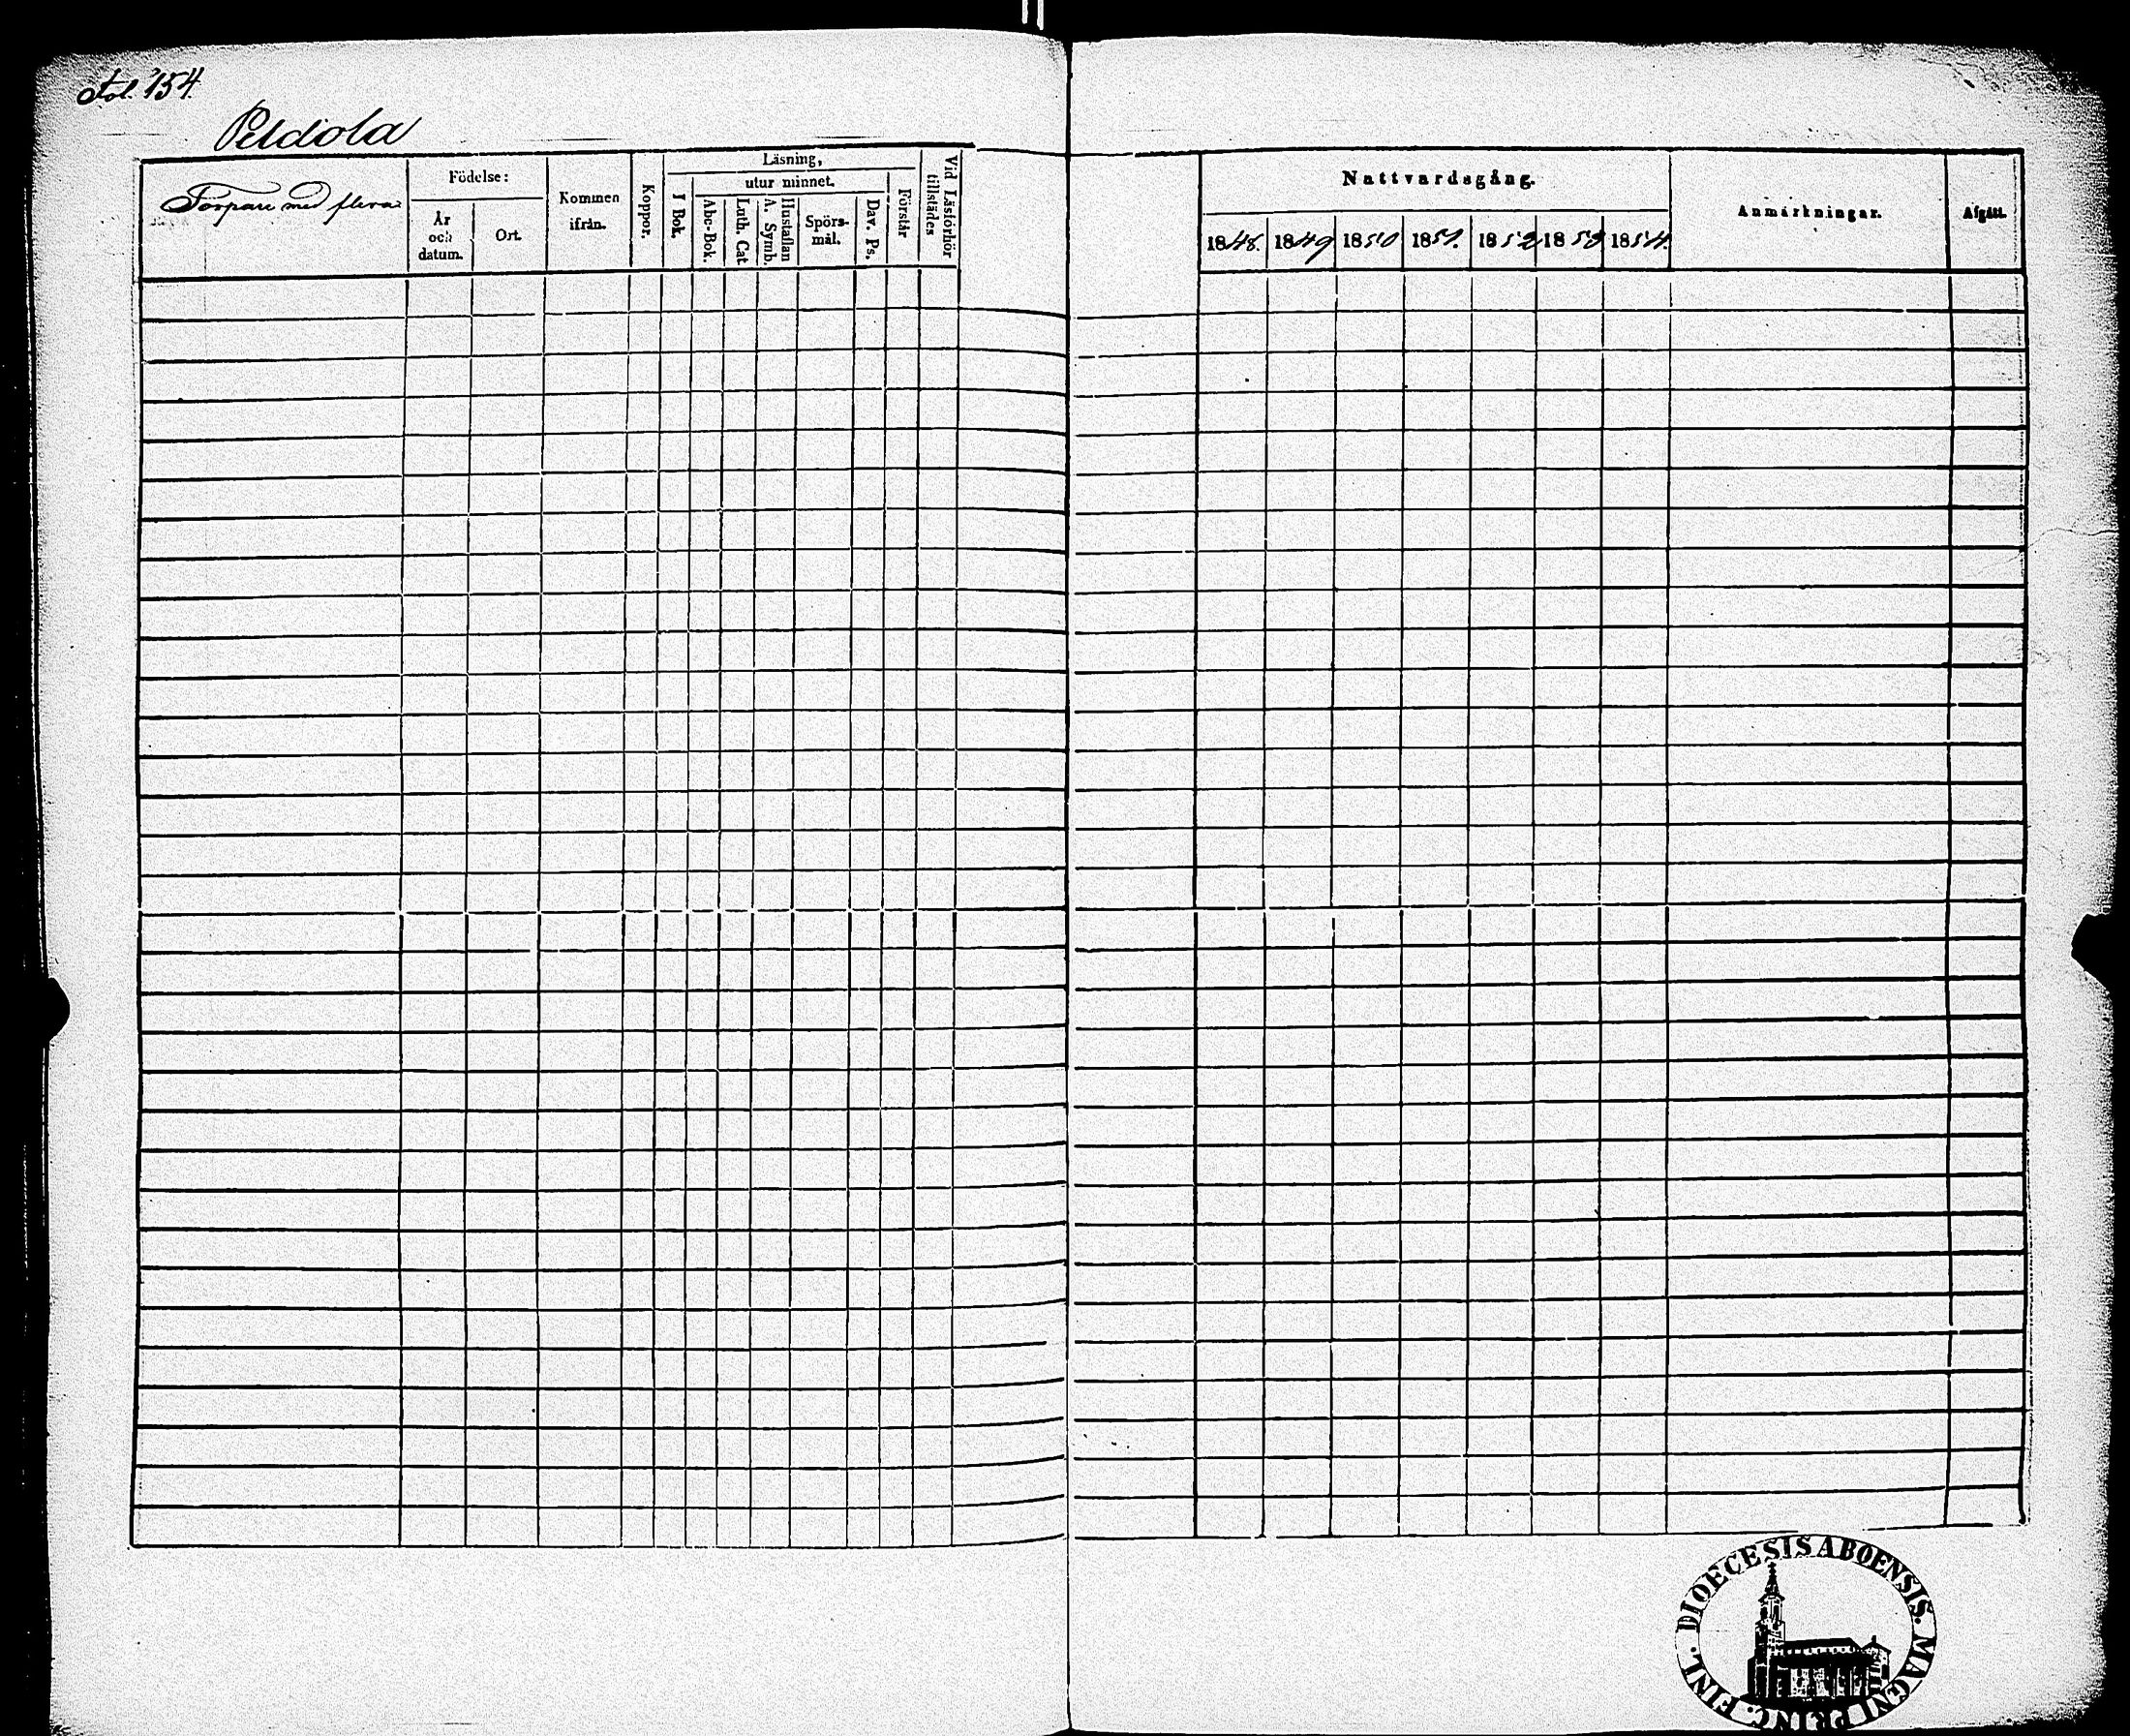 Fol. 154.
Peldiola
Torpare med flera
Födelse:
År
och
datum.
Ort.
Kommen
ifrån.
Koppor.
Läsning,
I Bok.
utur minnet.
Abc-Bok.
Luth. Cat.
Hustaflan
A. Symb.
Spörs-
mål.
Dav. Ps.
Förstår
Vid Läsförhör
tillstädes
Nattvardsgång.
1848. 1849 1850 1851. 1852 1853 1854.
Anmärkningar.
Afgått.
DIOECESIS ABOENSIS. MAGNI PRINC. FINL.